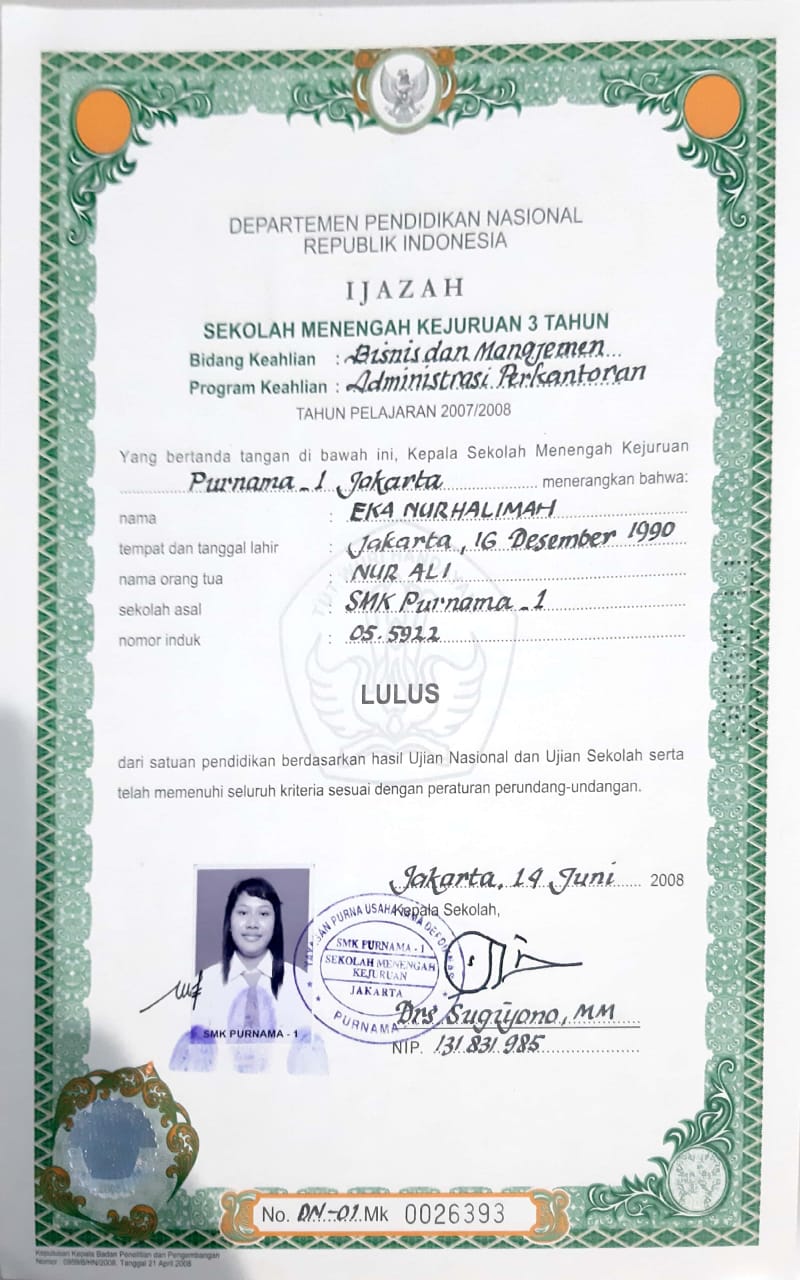 DEPARTEMEN PENDIDIKAN NASIONAL
REPUBLIK INDONESIA
IJAZAH
SEKOLAH MENENGAH KEJURUAN 3 TAHUN
Bidang Keahlian : Bisnis dan Manajemen
Program Keahlian : Administrasi Perkantoran
TAHUN PELAJARAN 2007/2008
Yang bertanda tangan di bawah ini, Kepala Sekolah Menengah Kejuruan
Purnama_1 Jakarta menerangkan bahwa:
nama : EKA NURHALIMAH
tempat dan tanggal lahir : Jakarta, 16 Desember 1990
nama orang tua : NUR ALI
sekolah asal : SMK Purnama_1
nomor induk : 05.5922
LULUS
dari satuan pendidikan berdasarkan hasil Ujian Nasional dan Ujian Sekolah serta
telah memenuhi seluruh kriteria sesuai dengan peraturan perundang-undangan.
Jakarta, 14 Juni 2008
Kepala Sekolah,
SMK PURNAMA - 1
SEKOLAH MENENGAH
KEJURUAN
JAKARTA
PURNAMA
Drs Sugiyono, MM
NIP. 131 831 985
SMK PURNAMA - 1
No. DN-01 Mk 0026393
Keputusan Kepala Badan Penelitian dan Pengembangan
Tanggal 21 April 2008